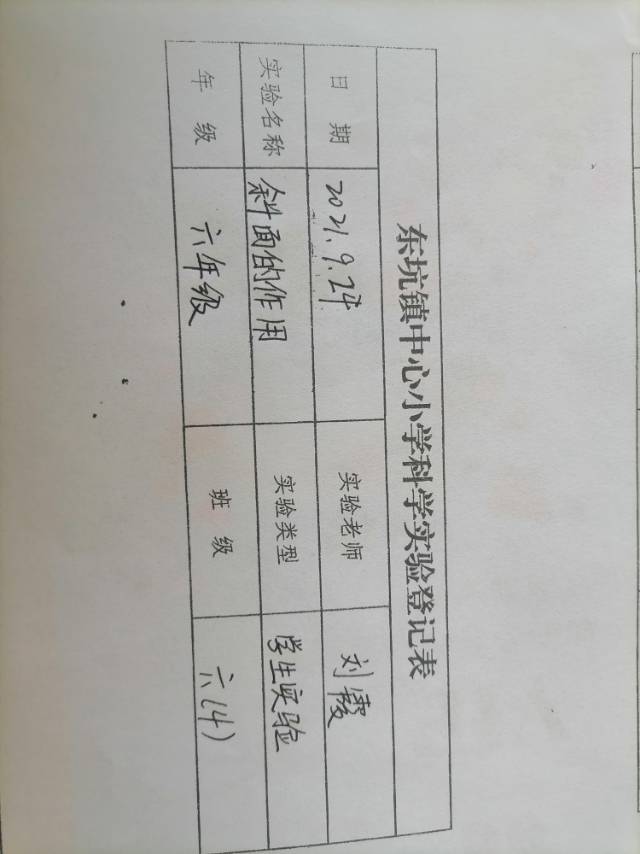 东坑镇中心小学科学实验登记表
日 期 2021.9.24 实验老师 刘霞
实验名称 斜面的作用 实验类型 学生实验
年 级 六年级 班 级 六(4)